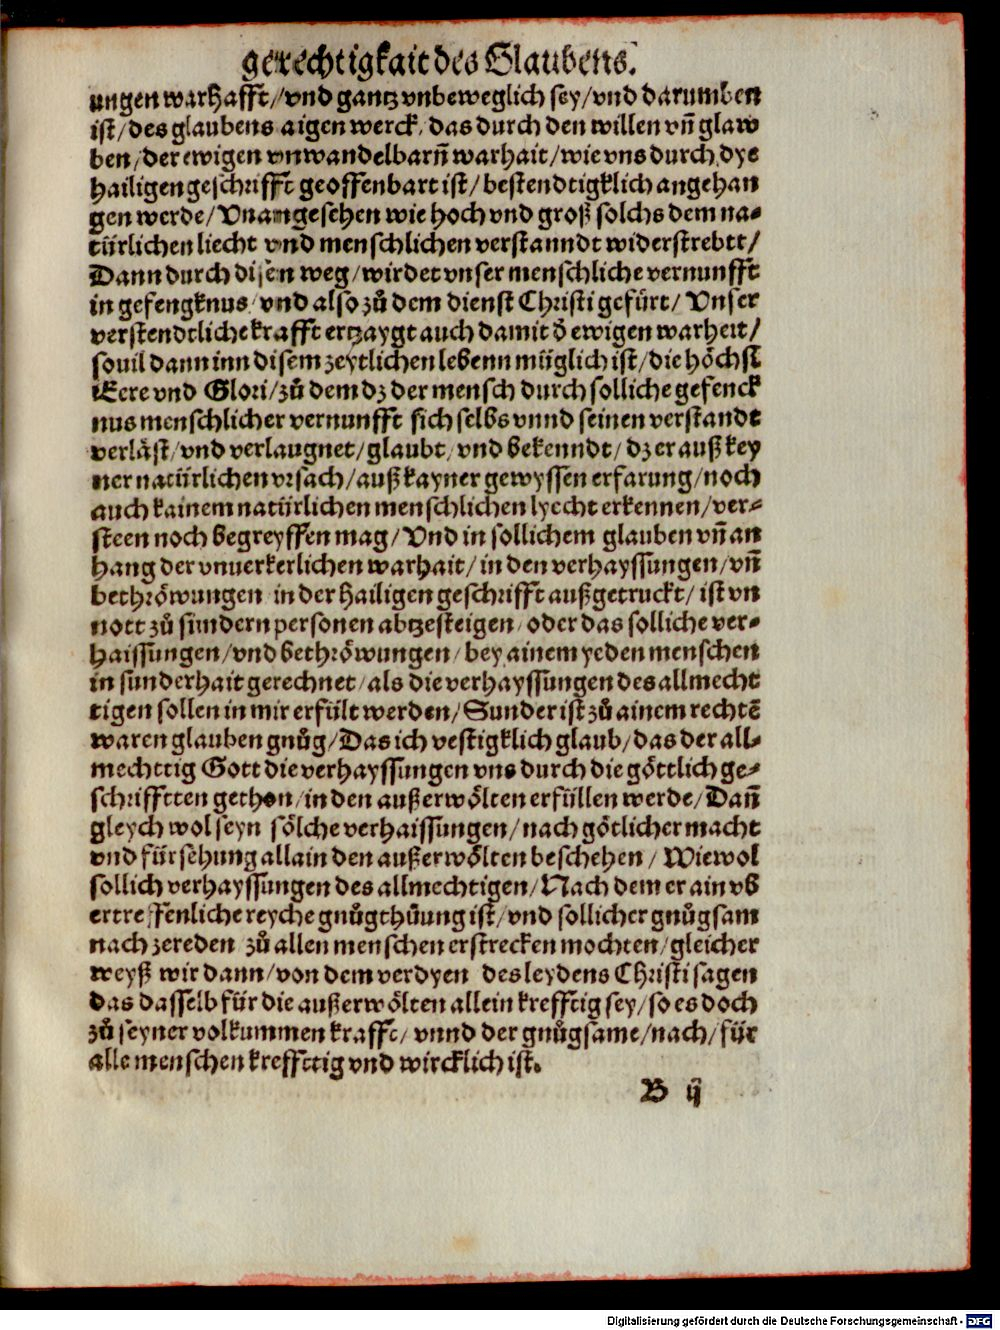 gerechtigkait des Glaubens.
ungen warhafft/vnd gantz vnbeweglich sey/vnd darumb en
ist/des glaubens aigen werck/das durch den willen vn̄ glaw
ben/der ewigen vnwandelbarn̄ warhait/wie vns durch dye
hailigen geschrifft geoffenbart ist/bestendtigklich angehan
gen werde/Vnangesehen wie hoch vnd groß solchs dem na-
türlichen liecht vnd menschlichen verstanndt widerstrebtt/
Dann durch disen weg/wirdet vnser menschliche vernunfft
in gefengknus/vnd also zů dem dienst Christi gefürt/Vnser
verstendtliche krafft ertzaygt auch damit d̄ ewigen warheit/
souil dann inn disem zeytlichen lebenn müglich ist/die höchst
Eere vnd Glori/zů dem dz der mensch durch solliche gefenck
nus menschlicher vernunfft sich selbs vnnd seinen verstandt
verläst/vnd verlaugnet/glaubt/vnd bekenndt/dz er auß key
ner natürlichen vrsach/auß kayner gewyssen erfarung/noch
auch kainem natürlichen menschlichen lyecht erkennen/ver-
steen noch begreyffen mag/Vnd in sollichem glauben vn̄ an
hang der vnuerkerlichen warhait/in den verhayssungen/vn̄
bethröwungen in der hailigen geschrifft außgetruckt/ist vn
nott zů sundern personen abtzesteigen/oder das solliche ver-
haissungen/vnd bethröwungen/bey ainem yeden menschen
in sunderhait gerechnet/als die verhayssungen des allmecht
tigen sollen in mir erfült werden/Sunder ist zů ainem rechtē
waren glauben gnůg/Das ich vestigklich glaub/das der all-
mechttig Gott die verhayssungen vns durch die göttlich ge-
schrifftten gethon/in den außerwölten erfüllen werde/Dan̄
gleych wol seyn sölche verhaissungen/nach götlicher macht
vnd fürsehung allain den außerwölten beschehen/Wiewol
sollich verhayssungen des allmechtigen/Nach dem er ain vb
ertreffenliche reyche gnůgthůung ist/vnd sollicher gnůgsam
nach zereden zů allen menschen erstrecken mochten/gleicher
weyß wir dann/von dem verdyen des leydens Christi sagen
das dasselb für die außerwölten allein krefftig sey/so es doch
zů seyner volkummen krafft/vnnd der gnůgsame/nach/für
alle menschen krefftig vnd wircklich ist.
B ij
Digitalisierung gefördert durch die Deutsche Forschungsgemeinschaft - DFG